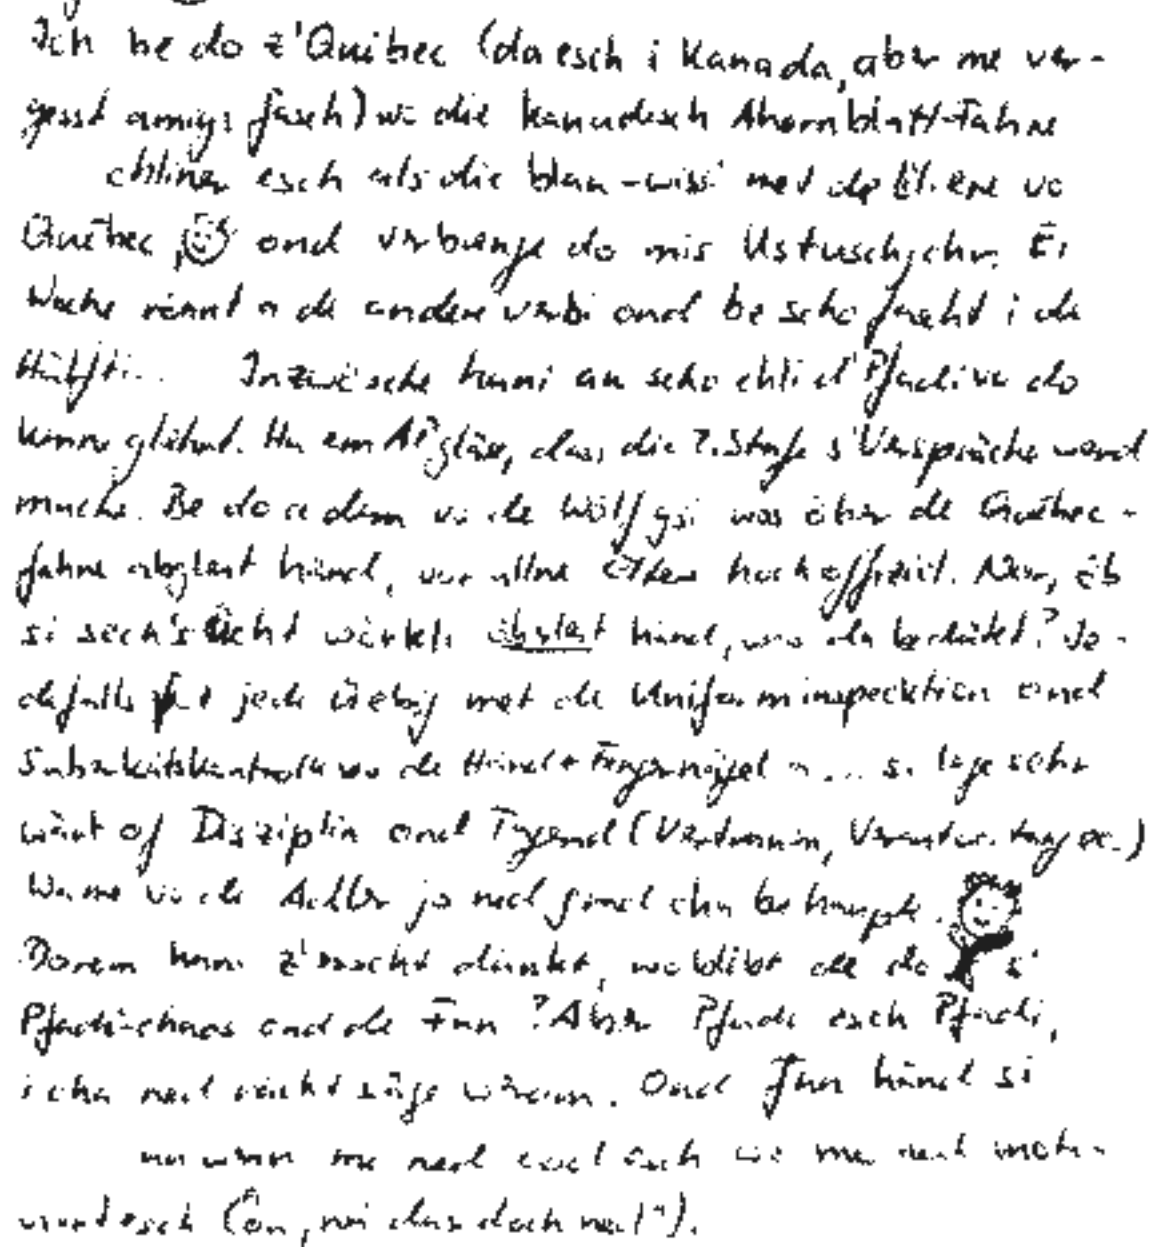 Ich be do z'Québec (da esch i Kanada, aber me ver-
gesst amigs fasch) wo die kanadisch Ahornblatt-Fahne
chliner esch als die blau-wissi met de Lilene vo
Québec, ond verbringe do mis Ustuschjohr. Ei
Woche rennt a de andere verbi ond be scho fascht i de
Hälfti. Inzwösche hani au scho chli d'Pfadi vo do
kenne glehrt. Ha em AP gläse, dass die 2. Stufe s'Verspräche wend
mache. Be do a dem vo de Wölf gsi was öber de Québec-
fahne abgleit händ, vor allne Eltere hoch offiziell. Nor, öb
si sech's ächt wörkli öberleit händ, was da bedütet? Je-
defalls jedi Üebig met de Uniforminspecktion ond
Suberkeitskontrolle vo de Händ + Fingernägel a ... si lege sehr
wärt of Disziplin ond Tugend (Vertrauen, Verantwortung etc.)
Was me vo de Adler jo ned grad cha behaupte.
Dorom hani z'erscht dänkt, wo blibt de do s'
Pfadi-chaos ond de Fun? Aber Pfadi esch Pfadi,
i cha ned rächt säge worom. Ond Fun händ si
au wenn me ned weiss me moti-
viert esch ("Oh, nei das doch ned").